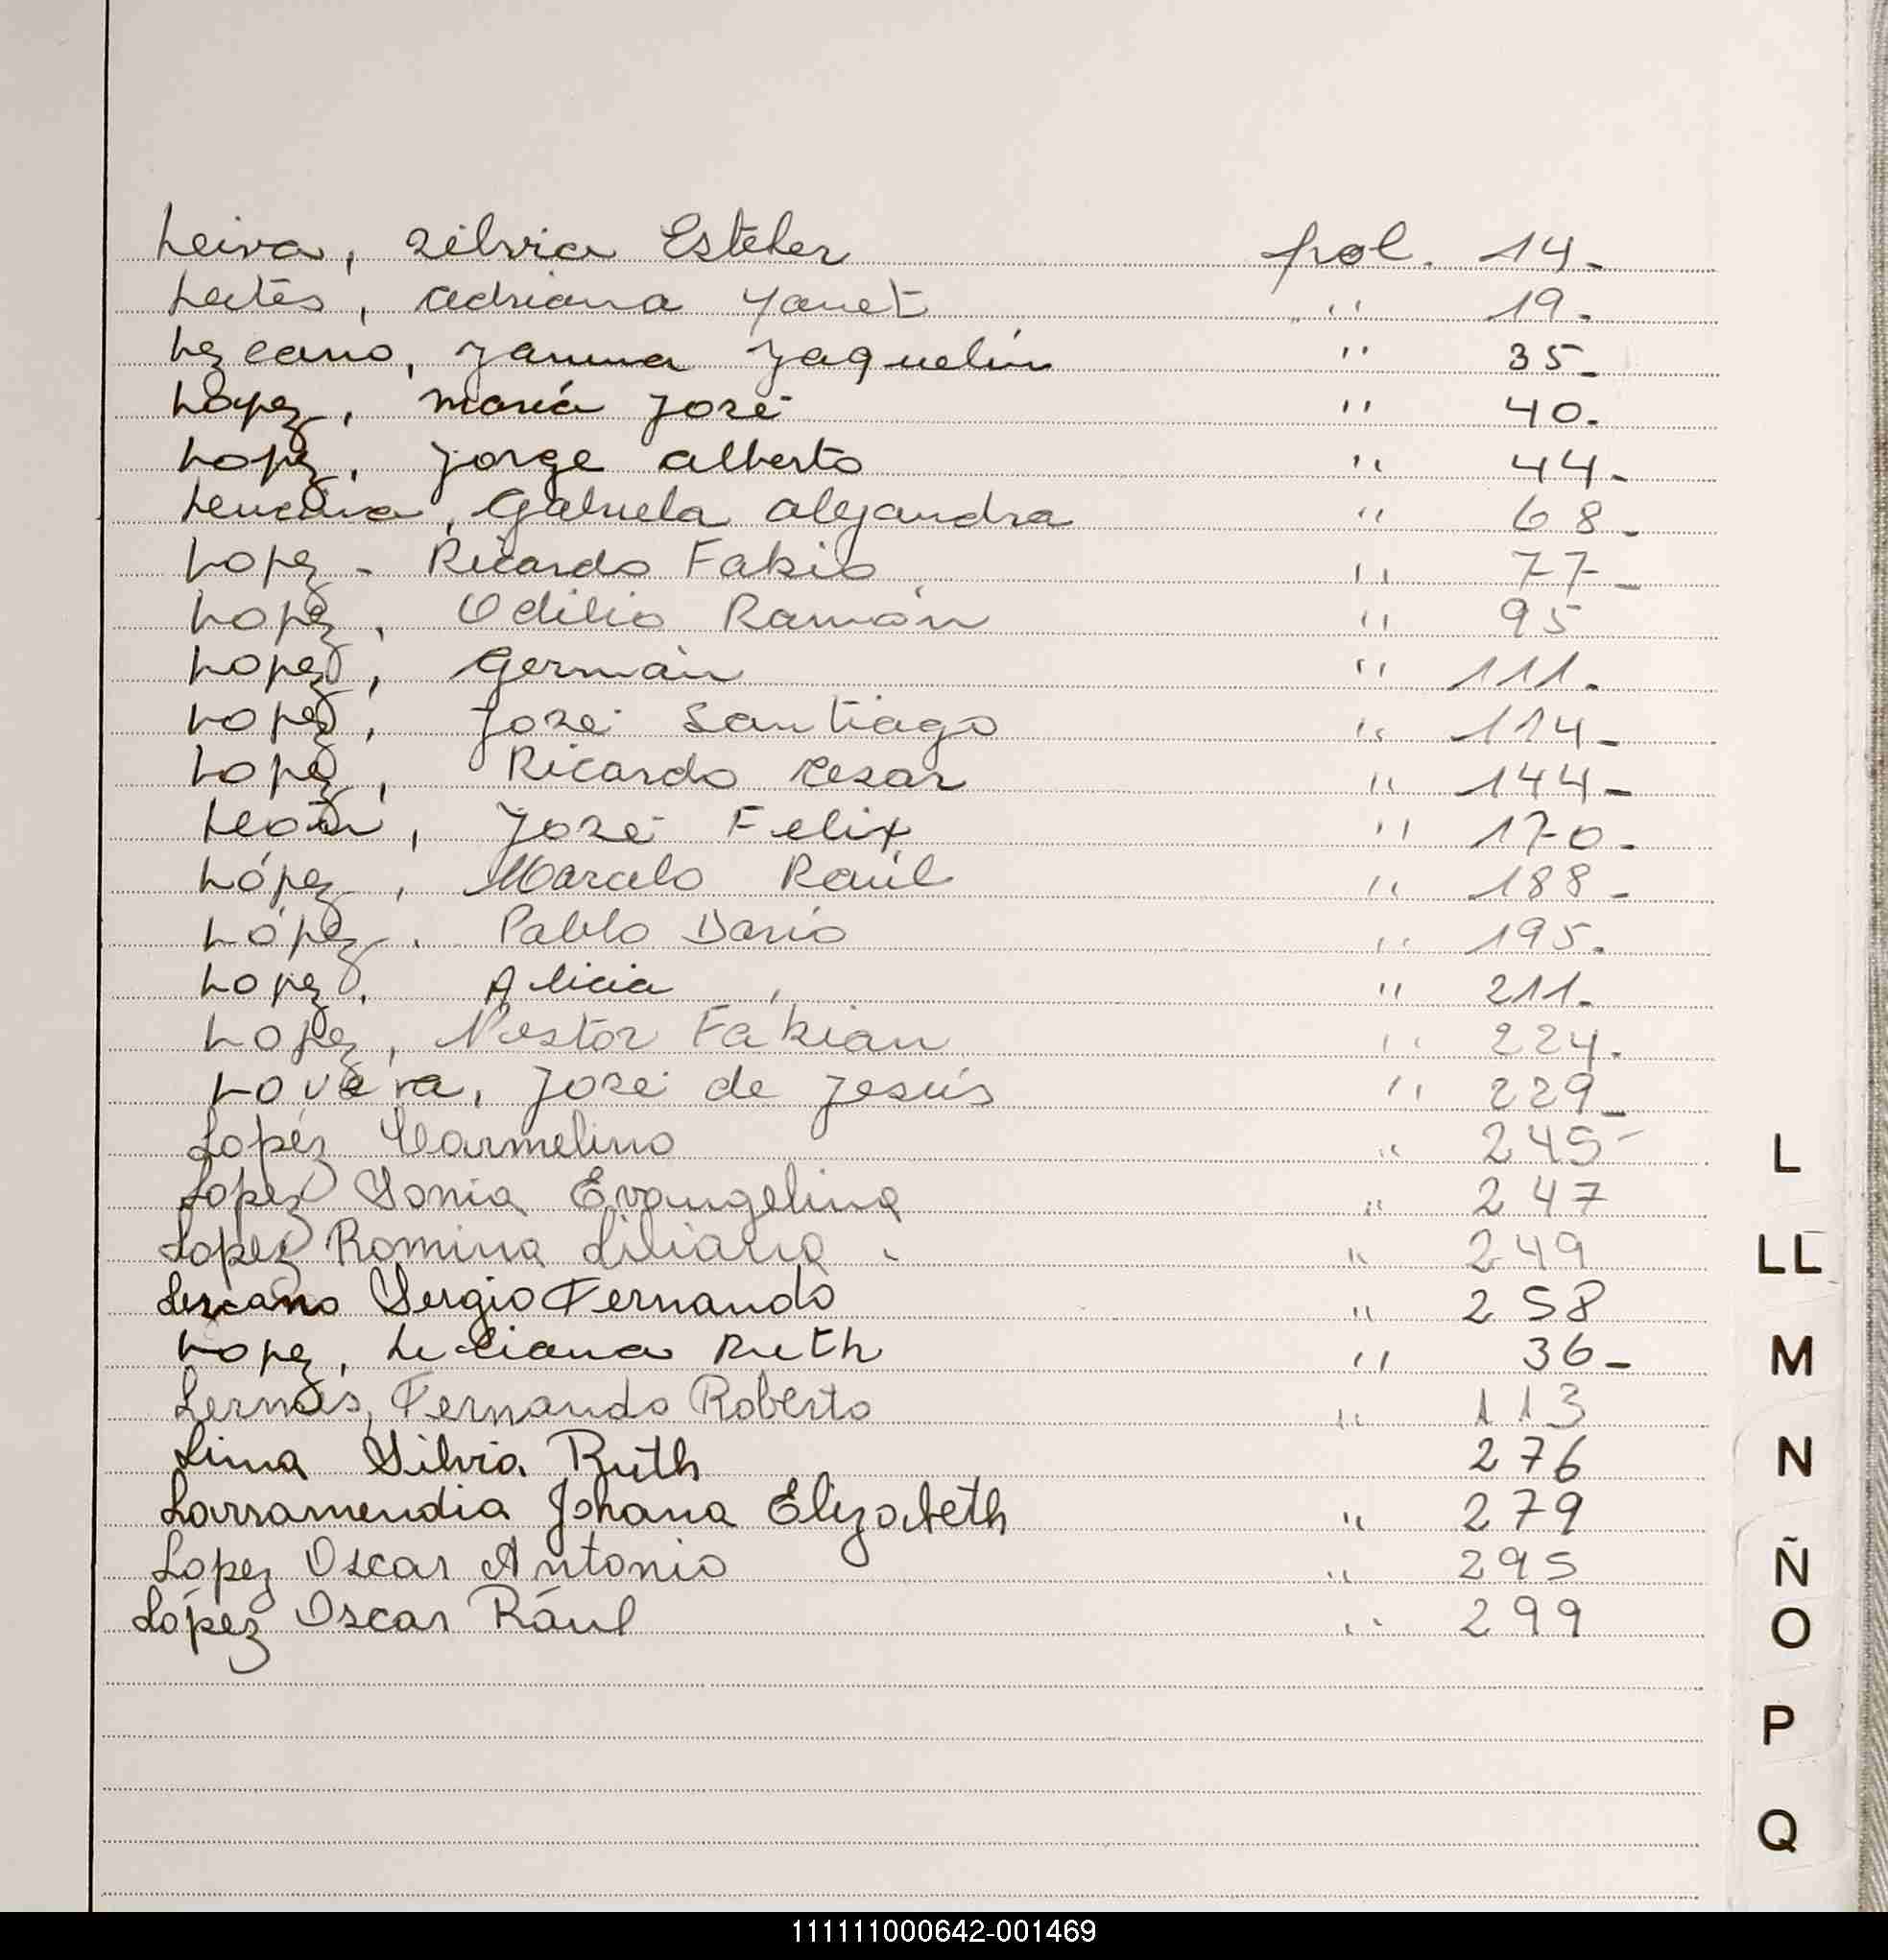 Leiva, Silvia Esteher fol. 14.
Leites, Adriana Yanet " 19.
Lezcano, Yanina Jaquelin " 35-
Lopez, María José " 40.
Lopez, Jorge Alberto " 44-
Gabriela Alejandra " 68-
Lopez - Ricardo Fabio " 77-
Lopez, Odilio Ramón " 95
Lopez, Germán " 111.
Lopez, José Santiago " 114-
Lopez, Ricardo Cesar " 144-
León, José Felix " 170-
López, Marcelo Raúl " 188-
López. Pablo Dario " 195.
Lopez, Alicia " 211.
Lopez, Nestor Fabian " 224.
Lovera, José de Jesús " 229-
Lopéz Carmelino " 245-
Lopez Sonia Evangelina " 247
Lopez Romina Liliana - " 249
Lezcano Sergio Fernando " 258
Lopez, Luciana Ruth " 36-
Lernes, Fernando Roberto " 113
Lima Silvia Ruth 276
Larramendia Johana Elizabeth " 279
Lopez Oscar Antonio " 295
López Oscar Rául " 299
L
LL
M
N
Ñ
O
P
Q
111111000642-001469